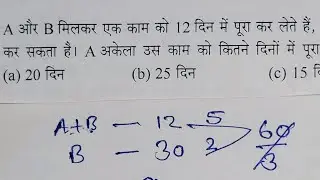 A और B मिलकर एक काम को 12 दिन में पूरा कर लेते हैं,
कर सकता है। A अकेला उस काम को कितने दिनों में पूरा
(a) 20 दिन (b) 25 दिन (c) 15 दि
A+B — 12 5 60
B — 30 2 3